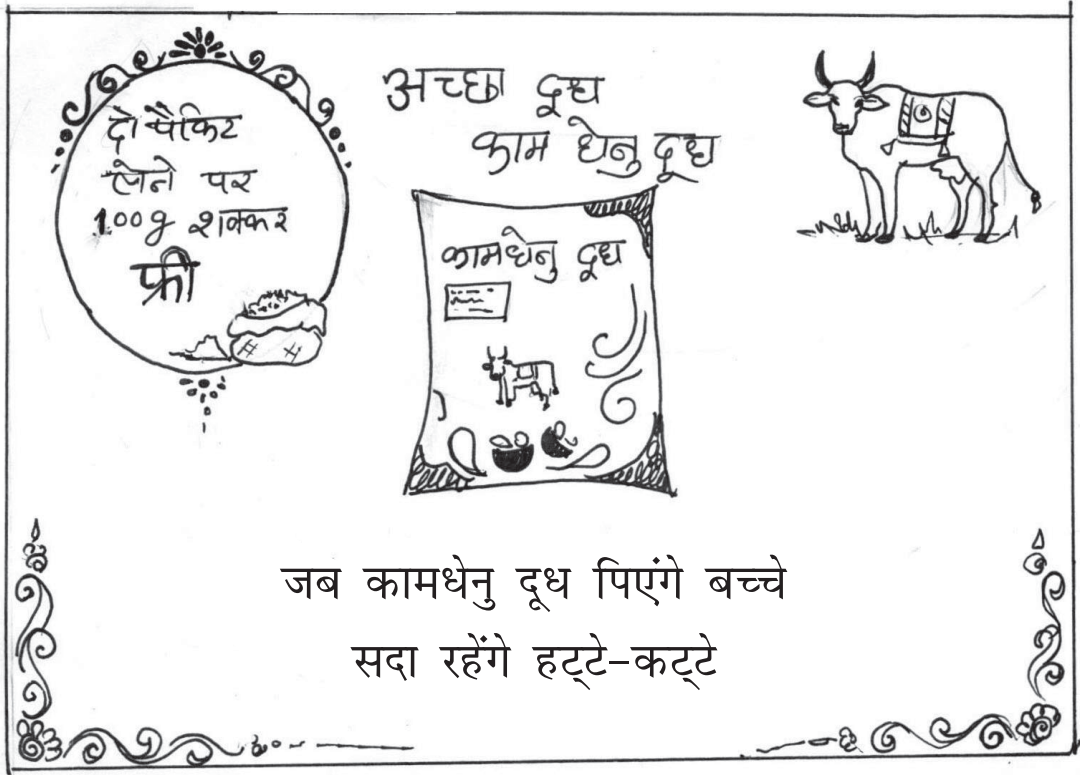 दो पैकिट
लेने पर
100g शक्कर
फ्री
अच्छा दूध
काम धेनु दूध
कामधेनु दूध
जब कामधेनु दूध पिएंगे बच्चे
सदा रहेंगे हट्टे-कट्टे